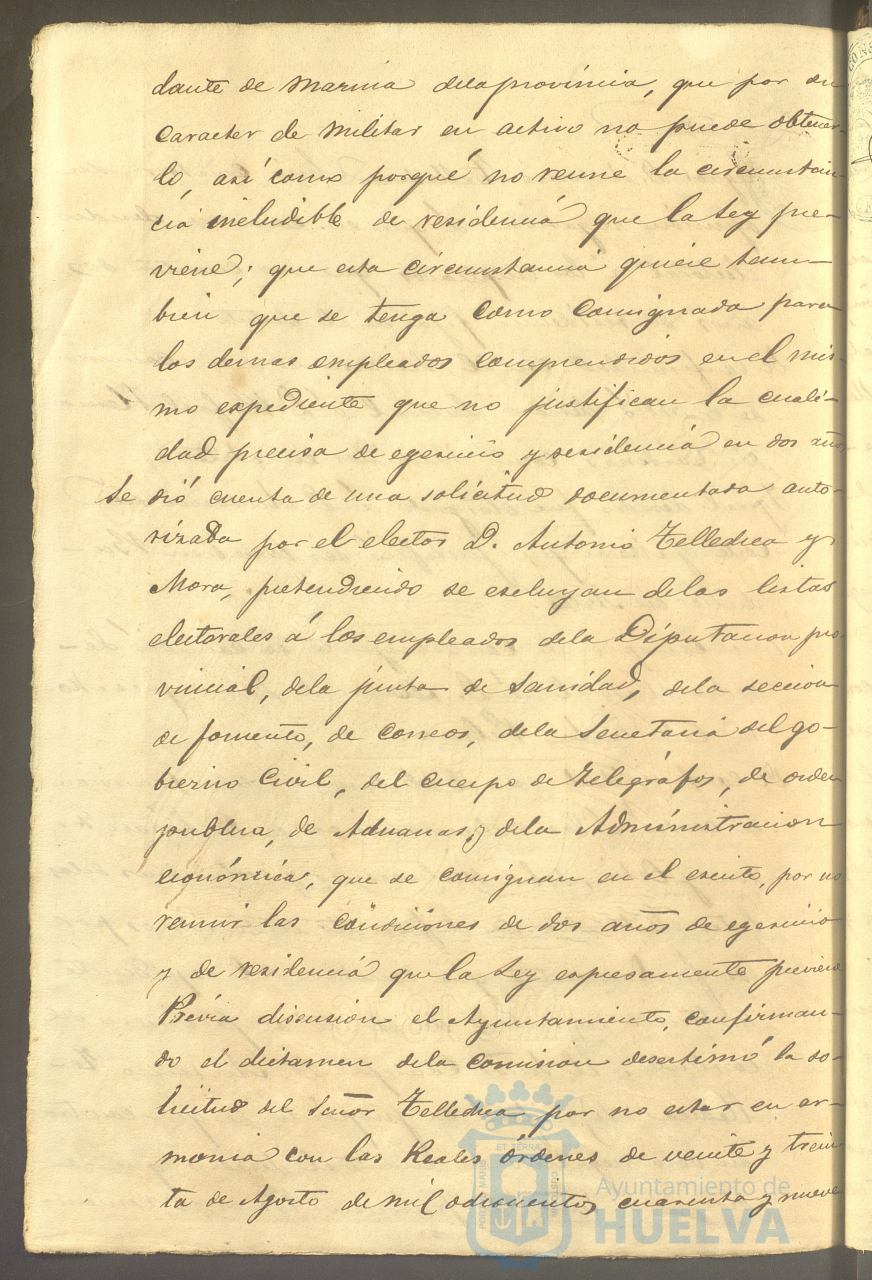 dante de Marina dela provincia, que por su
caracter de militar en activo no puede obtener-
lo, así como porqué no reune la circunstan-
cia ineludible de residencia que la Ley pre-
viene; que esta circunstancia quiere tam-
bien que se tenga como consignada para
los demas empleados comprendidos en el mis-
mo expediente que no justifican la cuali-
dad precisa de egercicio y residencia en dos años
Se dió cuenta de una solicitud documentada auto-
rizada por el elector D. Antonio Tellechea y
Mora, pretendiendo se escluyan delas listas
electorales á los empleados dela Diputacion pro
vincial, dela junta de Sanidad, dela seccion
de fomento, de correos, dela Secretaria del go-
bierno Civil, del cuerpo de Telegráfos, de orden
publico, de Aduanas, y dela Administracion
económica, que se consignan en el escrito, por no
reunir las condiciones de dos años de egercicio
y de residencia que la Ley espresamente previene
Prévia discusion el Ayuntamiento, confirman-
do el dictamen dela comision desestimó la so-
licitud del Señor Tellechea por no estar en ar-
monia con las Reales órdenes de veinte y trein-
ta de Agosto de mil ochocientos cuarenta y nueve
Ayuntamiento de
HUELVA